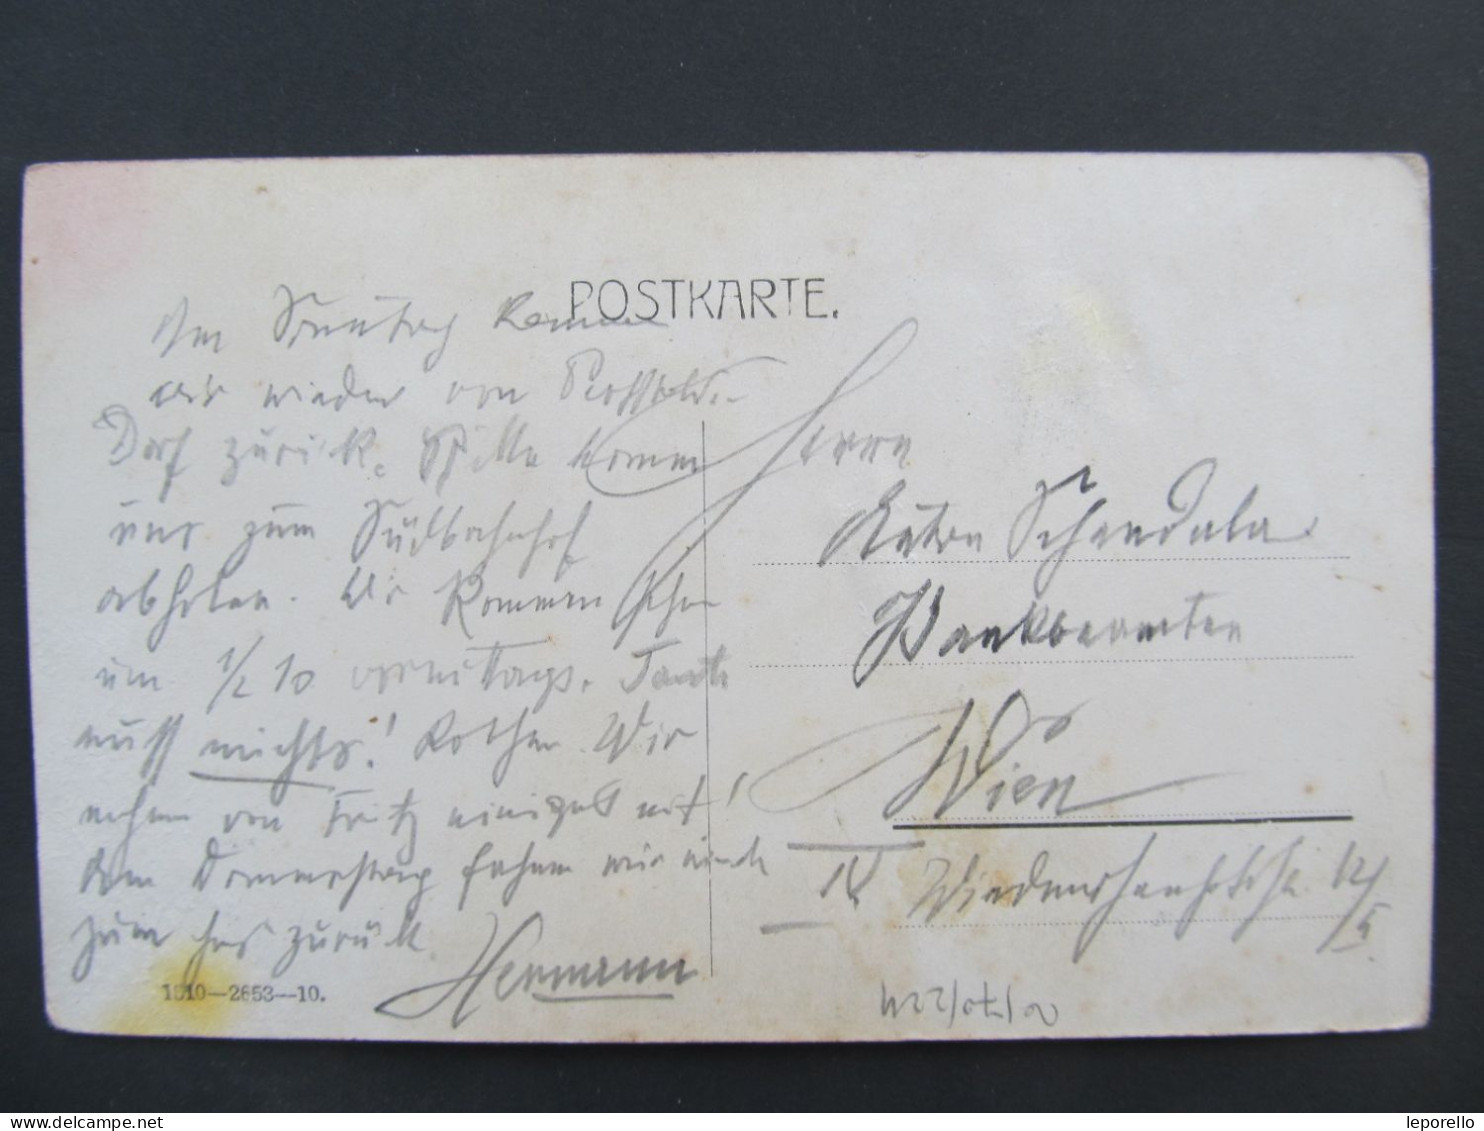 POSTKARTE.
Am Sonntag kommen
wir wieder von
Dorf zurück. Bitte komm
uns zum Südbahnhof
abholen. Wir kommen schon
um 1/2 10 vormittags. Tante
muss nichts! kochen. Wir
nehmen von Fritz einiges mit!
Am Donnerstag fahren wir
zurück
Hermann
1910—2653—10.
Herrn
Schandala
Bankbeamten
Wien
IV
12/5
leporello